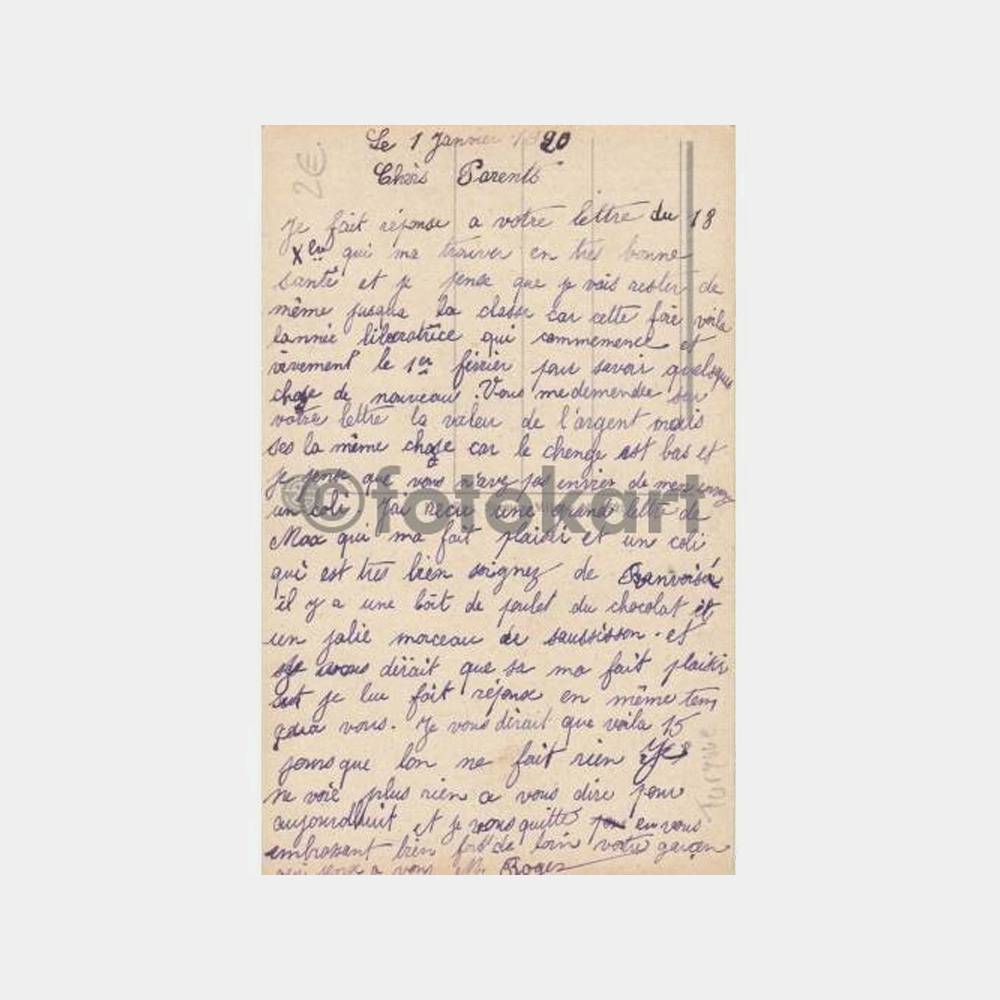 2€
Le 1 Janvier 1920
Chèrs Parents
Je fait réponse a votre lettre du 18
Xbre qui ma trouver en très bonne
santé et je pense que je vais rester de
même jusqua la classe car cette foie voila
lannée liberatrice qui commemence et
vivement le 1er février pour savoir quelques
chose de nouveau. Vous me demender sur
votre lettre la valeur de l'argent mais
ses la même chose car le chenge est bas et
je pense que vous n'avez pas envier de men envoy
un coli. Jai reçu une grande lettre de
Max qui ma fait plaisir et un coli
qui est très bien soignez de Ranvoisé
il y a une boit de poulet du chocolat et
un jolie morceau de saussisson. et
je vous dirait que sa ma fait plaisir
et je lui fait réponse en même tems
qua vous. Je vous dirait que voila 15
jours que lon ne fait rien Je
ne voie plus rien a vous dire pour
aujourdhuit et je vous quitte en vous
embrassant bien fort de loin votre garçon
qui pense a vous Roger
Turquie
©fotokart